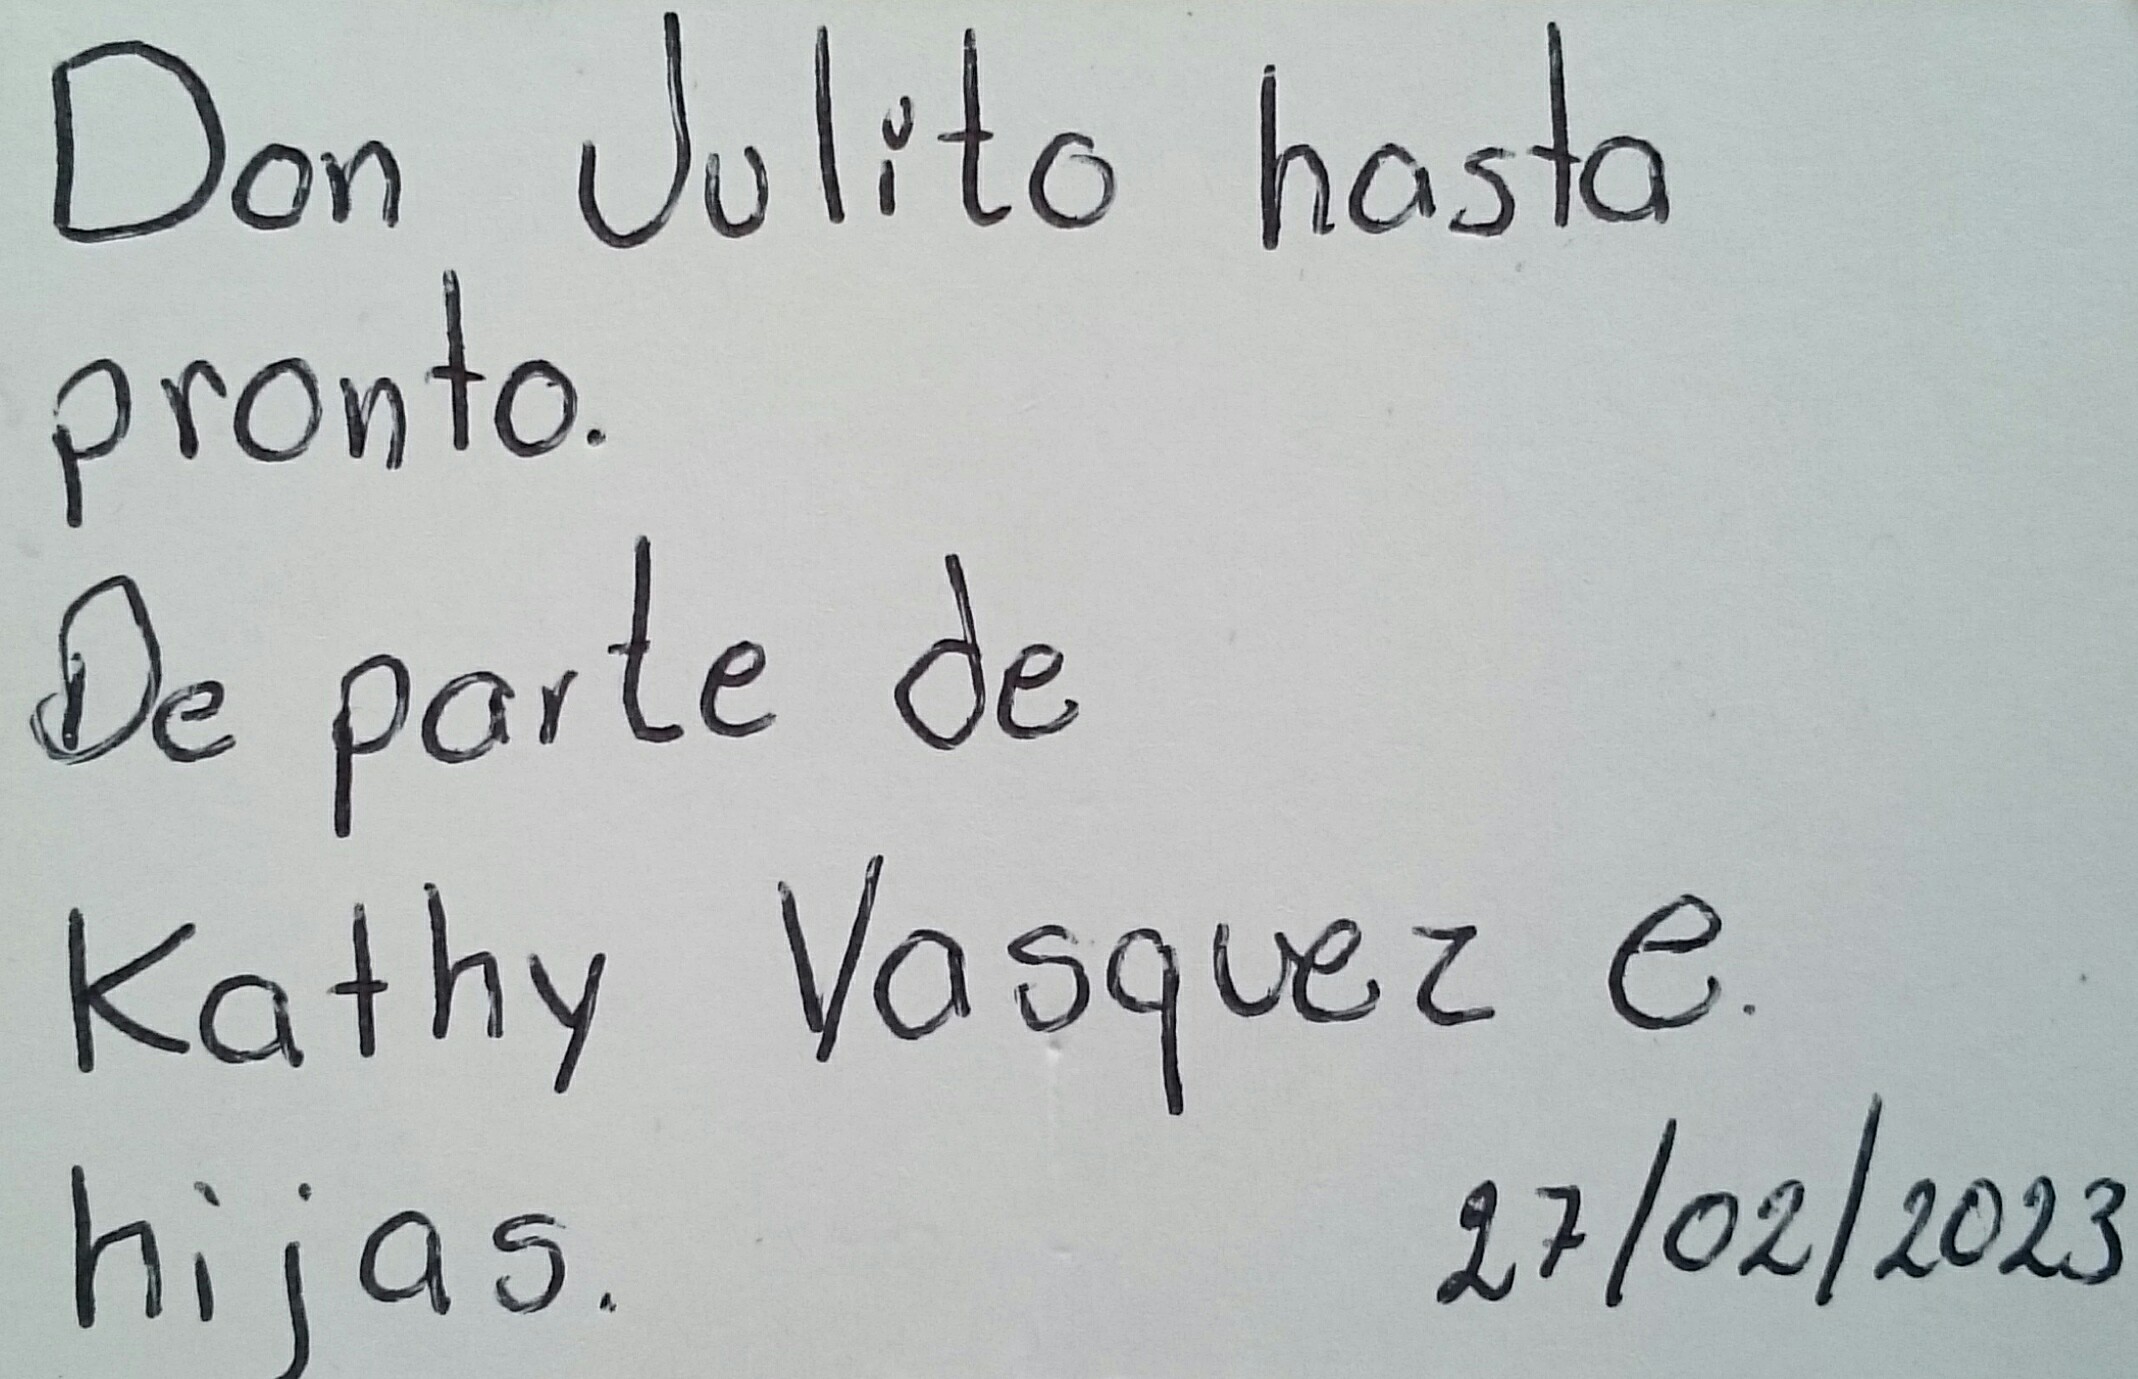 Don Julito hasta
pronto.
De parte de
Kathy Vasquez e.
hijas.
27/02/2023